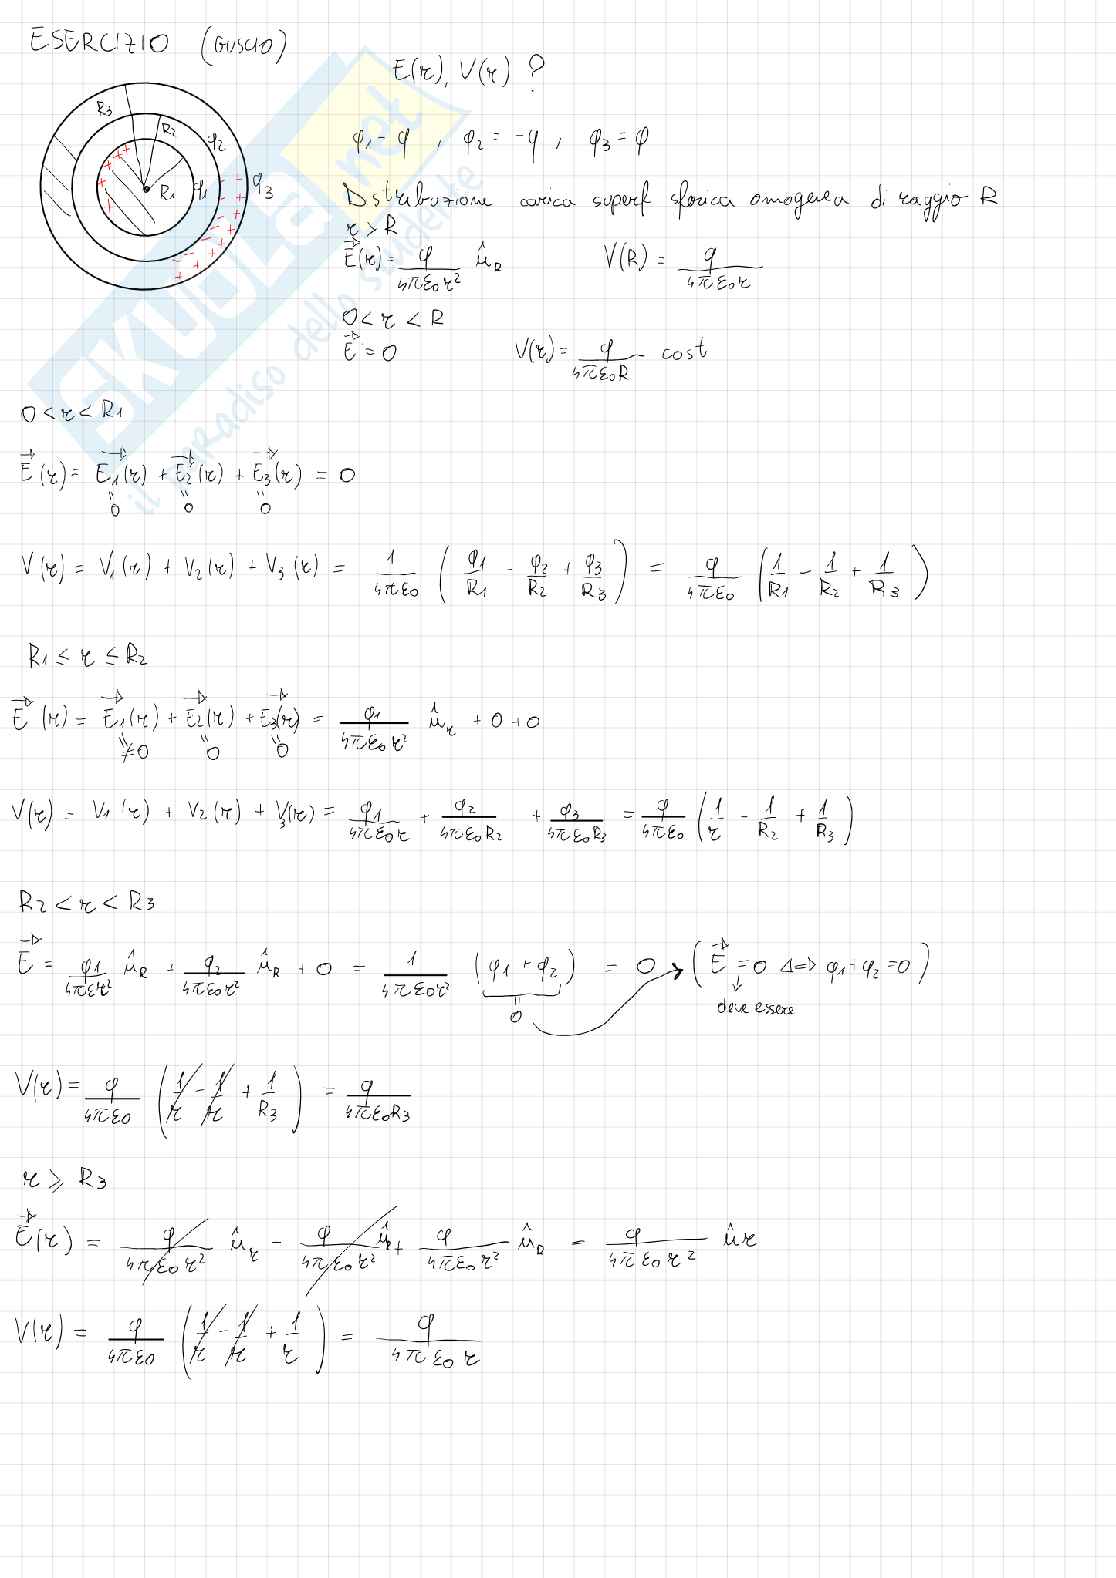 ESERCIZIO (GUSCIO)
E(r), V(r) ?
R3 R2 q2 R1 q1 q3
q1 = q , q2 = -q , q3 = q
Dstribuzione carica superf sferica omogenea di raggio R
r > R
E(r) = q/4πε0r² ûR V(R) = q/4πε0r
0 < r < R
E = 0 V(r) = q/4πε0R - cost
0 < r < R1
E(r) = E1(r) + E2(r) + E3(r) = 0
"0 "0 "0
V(r) = V1(r) + V2(r) + V3(r) = 1/4πε0 (q1/R1 - q2/R2 + q3/R3) = q/4πε0 (1/R1 - 1/R2 + 1/R3)
R1 ≤ r ≤ R2
E(r) = E1(r) + E2(r) + E3(r) = q1/4πε0r² ûr + 0 + 0
≠0 "0 "0
V(r) = V1(r) + V2(r) + V3(r) = q1/4πε0r + q2/4πε0R2 + q3/4πε0R3 = q/4πε0 (1/r - 1/R2 + 1/R3)
R2 < r < R3
E = q1/4πεr² ûR + q2/4πε0r² ûR + 0 = 1/4πε0r² (q1 + q2) = 0 → (E = 0 <=> q1 + q2 = 0)
"0 deve essere
V(r) = q/4πε0 (1/r - 1/r + 1/R3) = q/4πε0R3
r ≥ R3
E(r) = q/4πε0r² ûr - q/4πε0r² ûR + q/4πε0r² ûR = q/4πε0r² ûr
V(r) = q/4πε0 (1/r - 1/r + 1/r) = q/4πε0r
SKUOLA.net
il paradiso dello studente